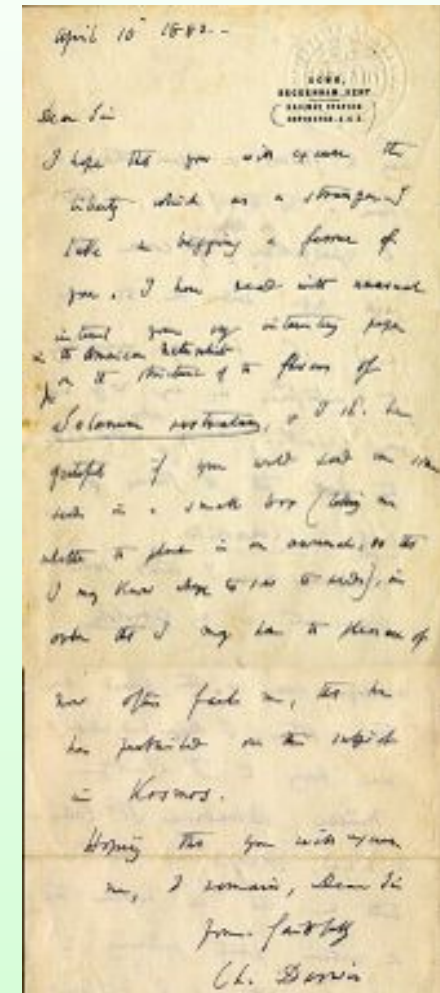 April 10th 1882.-
DOWN,
BECKENHAM, KENT.
(RAILWAY STATION
ORPINGTON. S.E.R.)
Dear Sir
I hope that you will excuse the
liberty which as a stranger I
take in begging a favour of
you. I have read with unusual
interest your very interesting paper
in the American Naturalist
on the structure of the flowers of
Solanum rostratum, & I shd. be
grateful if you would send me some
seeds in a small box (telling me
whether the plant is an annual, so that
I may know when to sow the seeds), in
order that I may have the pleasure of
now often fails me, that he
has published on this subject
in Kosmos.
Hoping that you will excuse
me, I remain, Dear Sir
Yours faithfully
Ch. Darwin